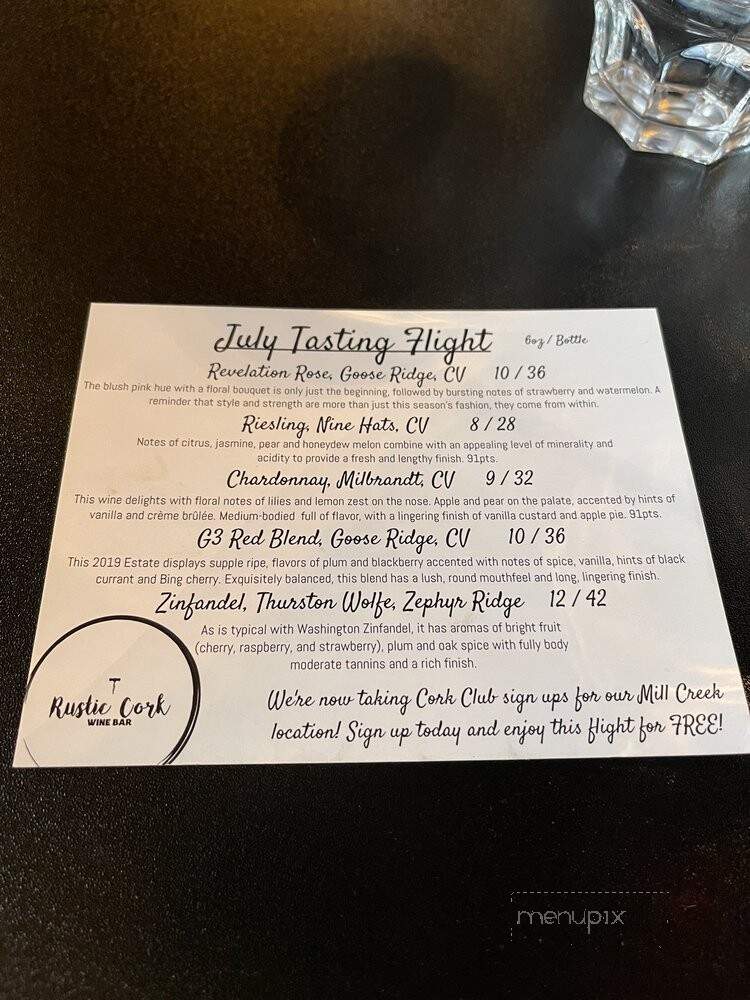 July Tasting Flight 6oz / Bottle
Revelation Rose, Goose Ridge, CV 10 / 36
The blush pink hue with a floral bouquet is only just the beginning, followed by bursting notes of strawberry and watermelon. A
reminder that style and strength are more than just this season's fashion, they come from within.
Riesling, Nine Hats, CV 8 / 28
Notes of citrus, jasmine, pear and honeydew melon combine with an appealing level of minerality and
acidity to provide a fresh and lengthy finish. 91pts.
Chardonnay, Milbrandt, CV 9 / 32
This wine delights with floral notes of lilies and lemon zest on the nose. Apple and pear on the palate, accented by hints of
vanilla and crème brûlée. Medium-bodied full of flavor, with a lingering finish of vanilla custard and apple pie. 91pts.
G3 Red Blend, Goose Ridge, CV 10 / 36
This 2019 Estate displays supple ripe, flavors of plum and blackberry accented with notes of spice, vanilla, hints of black
currant and Bing cherry. Exquisitely balanced, this blend has a lush, round mouthfeel and long, lingering finish.
Zinfandel, Thurston Wolfe, Zephyr Ridge 12 / 42
As is typical with Washington Zinfandel, it has aromas of bright fruit
(cherry, raspberry, and strawberry), plum and oak spice with fully body
moderate tannins and a rich finish.
Rustic Cork
WINE BAR
We're now taking Cork Club sign ups for our Mill Creek
location! Sign up today and enjoy this flight for FREE!
menupix